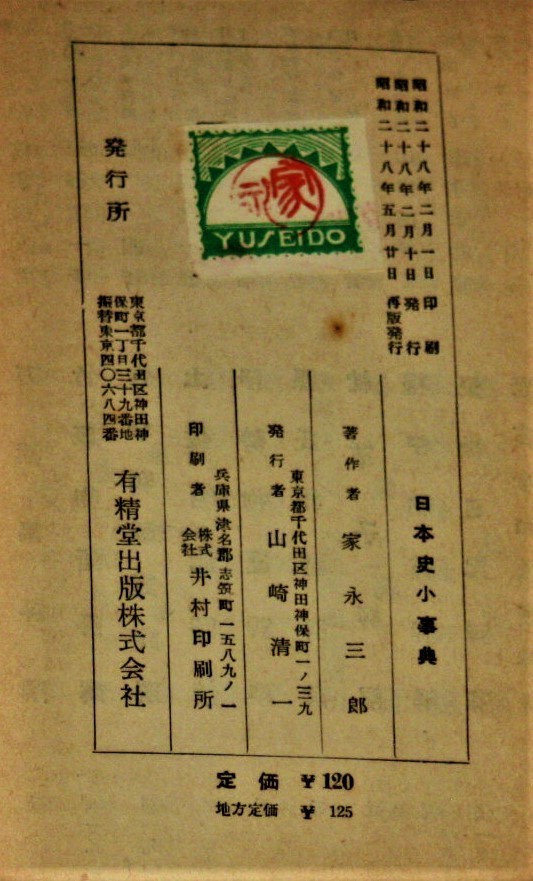 昭和二十八年二月一日 印刷
昭和二十八年二月十日 発行
昭和二十八年五月廿日 再版発行
YUSEIDO
家永
日本史小事典
著作者 家永三郎
東京都千代田区神田神保町一ノ三九
発行者 山崎清一
兵庫県津名郡志筑町一五八九ノ一
印刷者 株式会社 井村印刷所
発行所
東京都千代田区神田神
保町一丁目三十九番地
振替東京四〇六八四番
有精堂出版株式会社
定価 ¥120
地方定価 ¥125